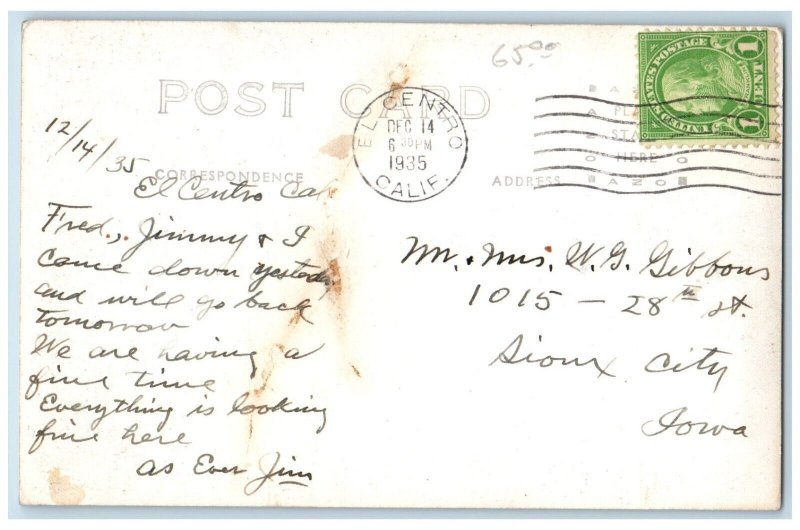 65.00
POST CARD
1 UNITED STATES POSTAGE 1
CENT
EL CENTRO
DEC 14
6 30 PM
1935
CALIF.
AZO
PLACE
STAMP
HERE
AZO
CORRESPONDENCE
ADDRESS
12/14/35
El Centro Cal
Fred, Jimmy & I
came down yesterday
and will go back
tomorrow
We are having a
fine time
Everything is looking
fine here
as Ever Jim
Mr. & Mrs. W. G. Gibbons
1015 - 28th st.
Sioux City
Iowa